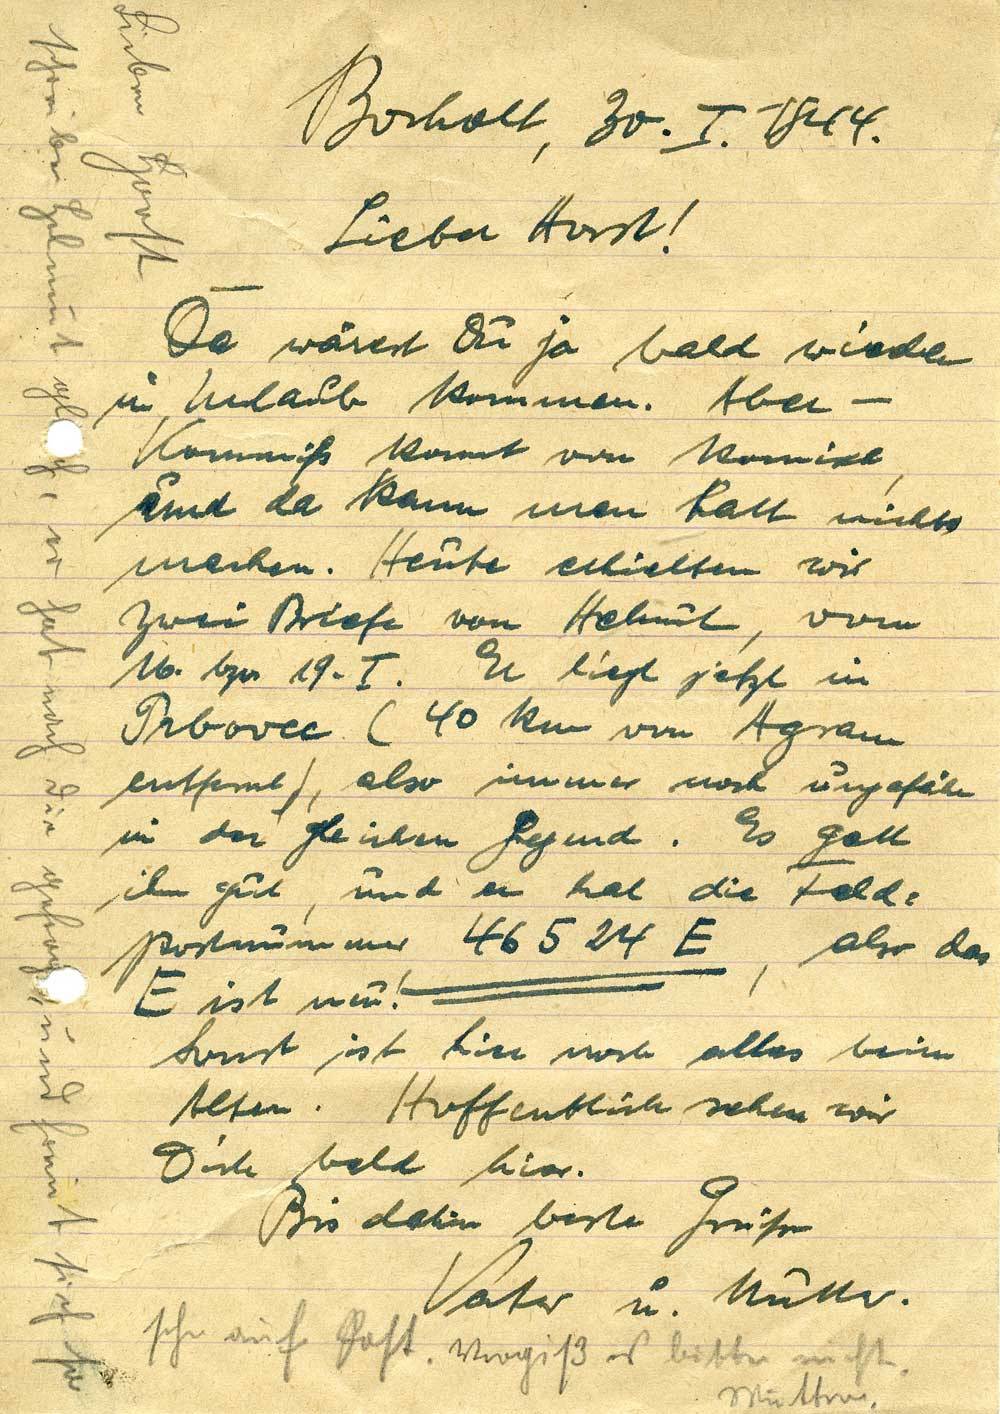 Bocholt, 30. I. 1944.
Lieber Horst!
Da wärest Du ja bald wieder
in Urlaub kommen. Aber –
Kommiß kommt von komisch,
und da kann man halt nichts
machen. Heute erhielten wir
zwei Briefe von Helmut, vom
16. bzw. 19. I. Er liegt jetzt in
Vrbovec (40 km von Agram
entfernt), also immer noch ungefähr
in der gleichen Gegend. Es geht
ihm gut, und er hat die Feld=
postnummer 46524 E, also das
E ist neu!
Sonst ist hier noch alles beim
Alten. Hoffentlich sehen wir
Dich bald hier.
Bis dahin beste Grüße
Vater u. Mutter.
Lieber Horst
schreibe Helmut gleich, er hat nach Dir gefragt, und freut sich so
sehr auf Post. Vergiß es bitte nicht.
Mutter.